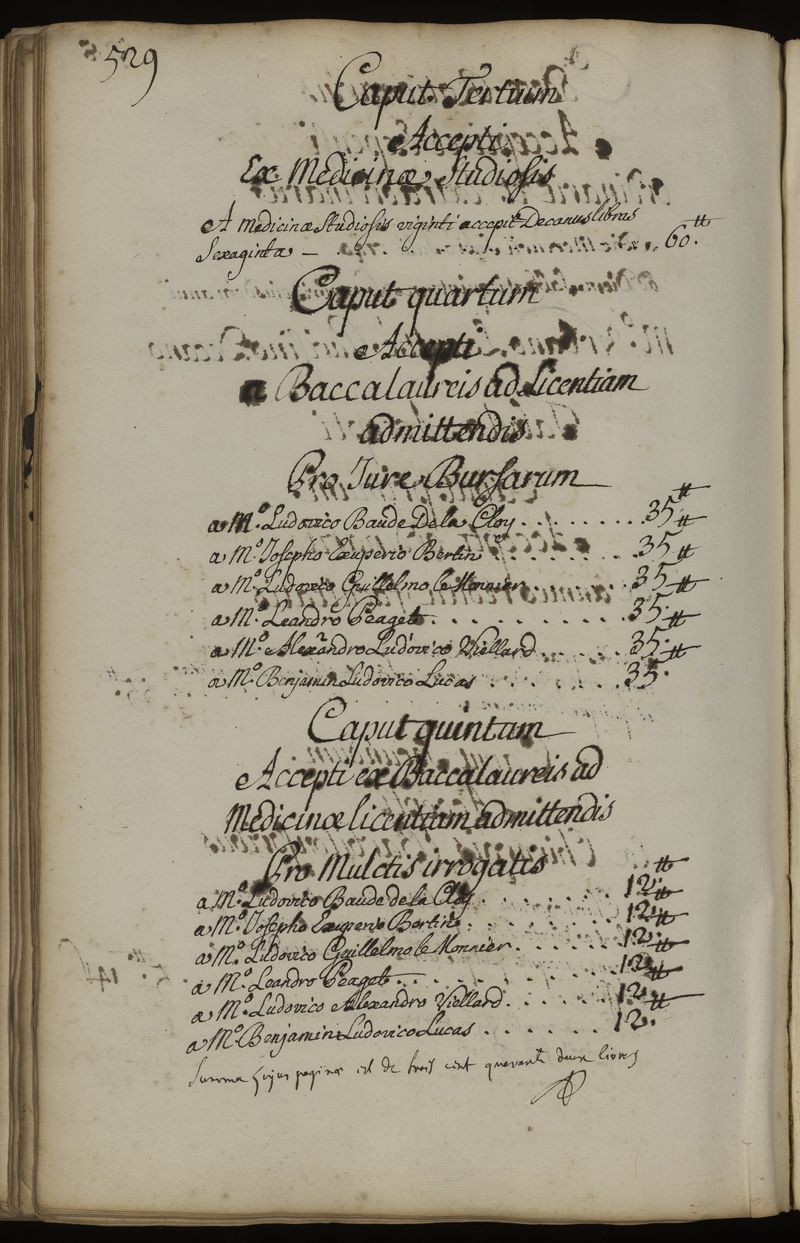 529
Caput Tertium
Accepti
Ex Medicinæ Studiosis
A Medicinæ Studiosis viginti accepit Decanus libras
Sexaginta — . . . . . . . . . . 60.ᵗᵗ
Caput quartum
Accepti
a Baccalaureis ad Licentiam
admittendis
Pro Jure Bursarum
a M.º Ludovico Baude De la Cloy . . . . . . . . 35ᵗᵗ
a M.º Josepho Exuperio Bertin . . . . . . . . 35ᵗᵗ
a M.º Ludovico Guillelmo le Monnier . . . . . . 35ᵗᵗ
a M.º Leandro Peaget . . . . . . . . . . . 35.ᵗᵗ
a M.º Alexandro Ludovico Viellard . . . . . . 35.ᵗᵗ
a M.º Benjamin Ludovico Lucas . . . . . . . . 35.ᵗᵗ
Caput quintum
Accepti ex Baccalaureis ad
Medicinæ licentiam admittendis
Pro Mulctis irrogatis
a M.º Ludovico Baude de la Cloy . . . . . . . 12.ᵗᵗ
a M.º Josepho Exuperio Bertin . . . . . . . . 12.ᵗᵗ
a M.º Ludovico Guillelmo le Monnier . . . . . . 12.ᵗᵗ
a M.º Leandro Peaget . . . . . . . . . . . 12.ᵗᵗ
a M.º Ludovico Alexandro Viellard . . . . . . 12.ᵗᵗ
a M.º Benjamin Ludovico Lucas . . . . . . . 12.ᵗᵗ
Summa hujus paginæ est de trois cent quarante deux livres